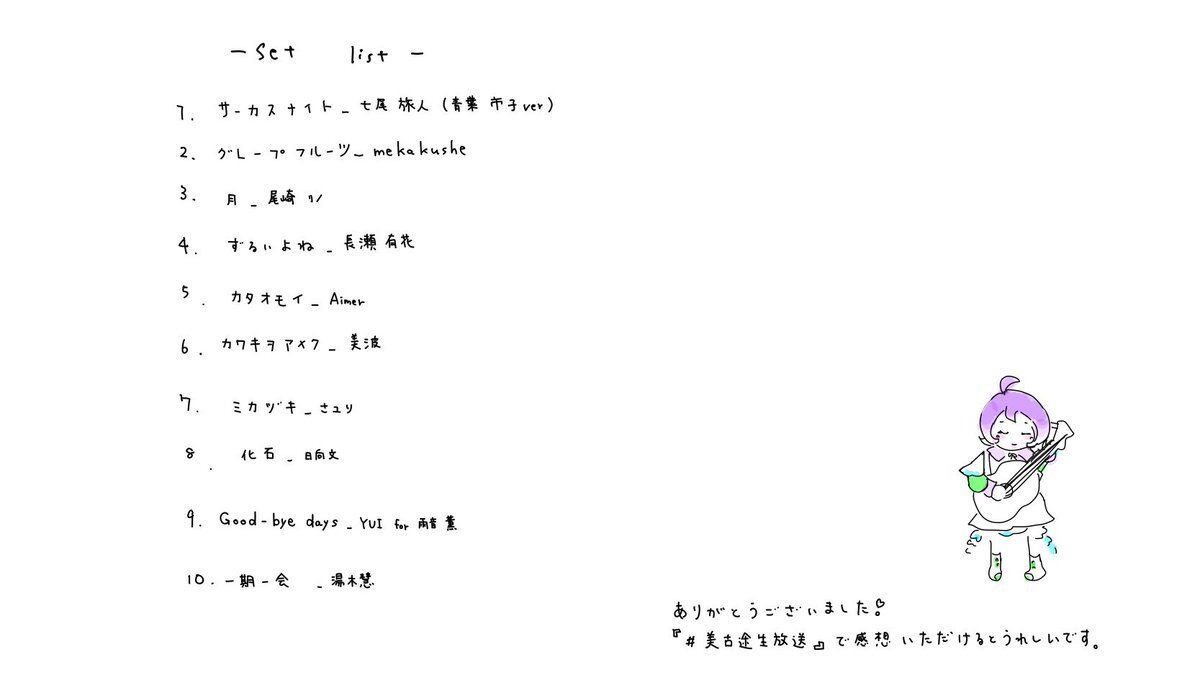 - set list -
1. サーカスナイト_七尾旅人(青葉市子ver)
2. グレープフルーツ_mekakushe
3. 月_尾崎リノ
4. ずるいよね_長瀬有花
5. カタオモイ_Aimer
6. カワキヲアメク_美波
7. ミカヅキ_さユり
8. 化石_日向文
9. Good-bye days_YUI for 雨音薫
10. 一期一会 _湯木慧
ありがとうございました!
『#美古途生放送』で感想いただけるとうれしいです。